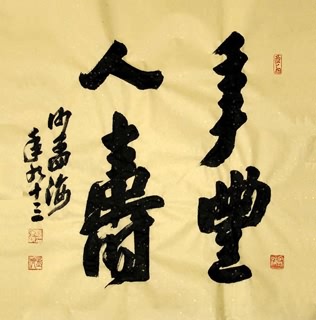 年豐
人壽
沙孟海
年九十三